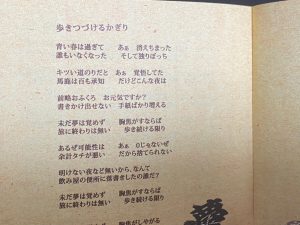 歩きつづけるかぎり
青い春は過ぎて　あぁ　消えちまった
誰もいなくなった　そして独りぼっち
キツい道のりだと　あぁ　覚悟してた
馬鹿は百も承知　だけどこんな夜は
前略おふくろ　お元気ですか？
書きかけ出せない　手紙ばかり増える
未だ夢は覚めず　胸焦がすならば
旅に終わりは無い　歩き続ける限り
あるぜ可能性は　あぁ　0じゃないぜ
余計タチが悪い　だから捨てられない
明けない夜など無いから、なんて
飲み屋の便所に落書きしたの誰だ？
未だ夢は覚めず　胸焦がすならば
旅に終わりは無い　歩き続ける限り